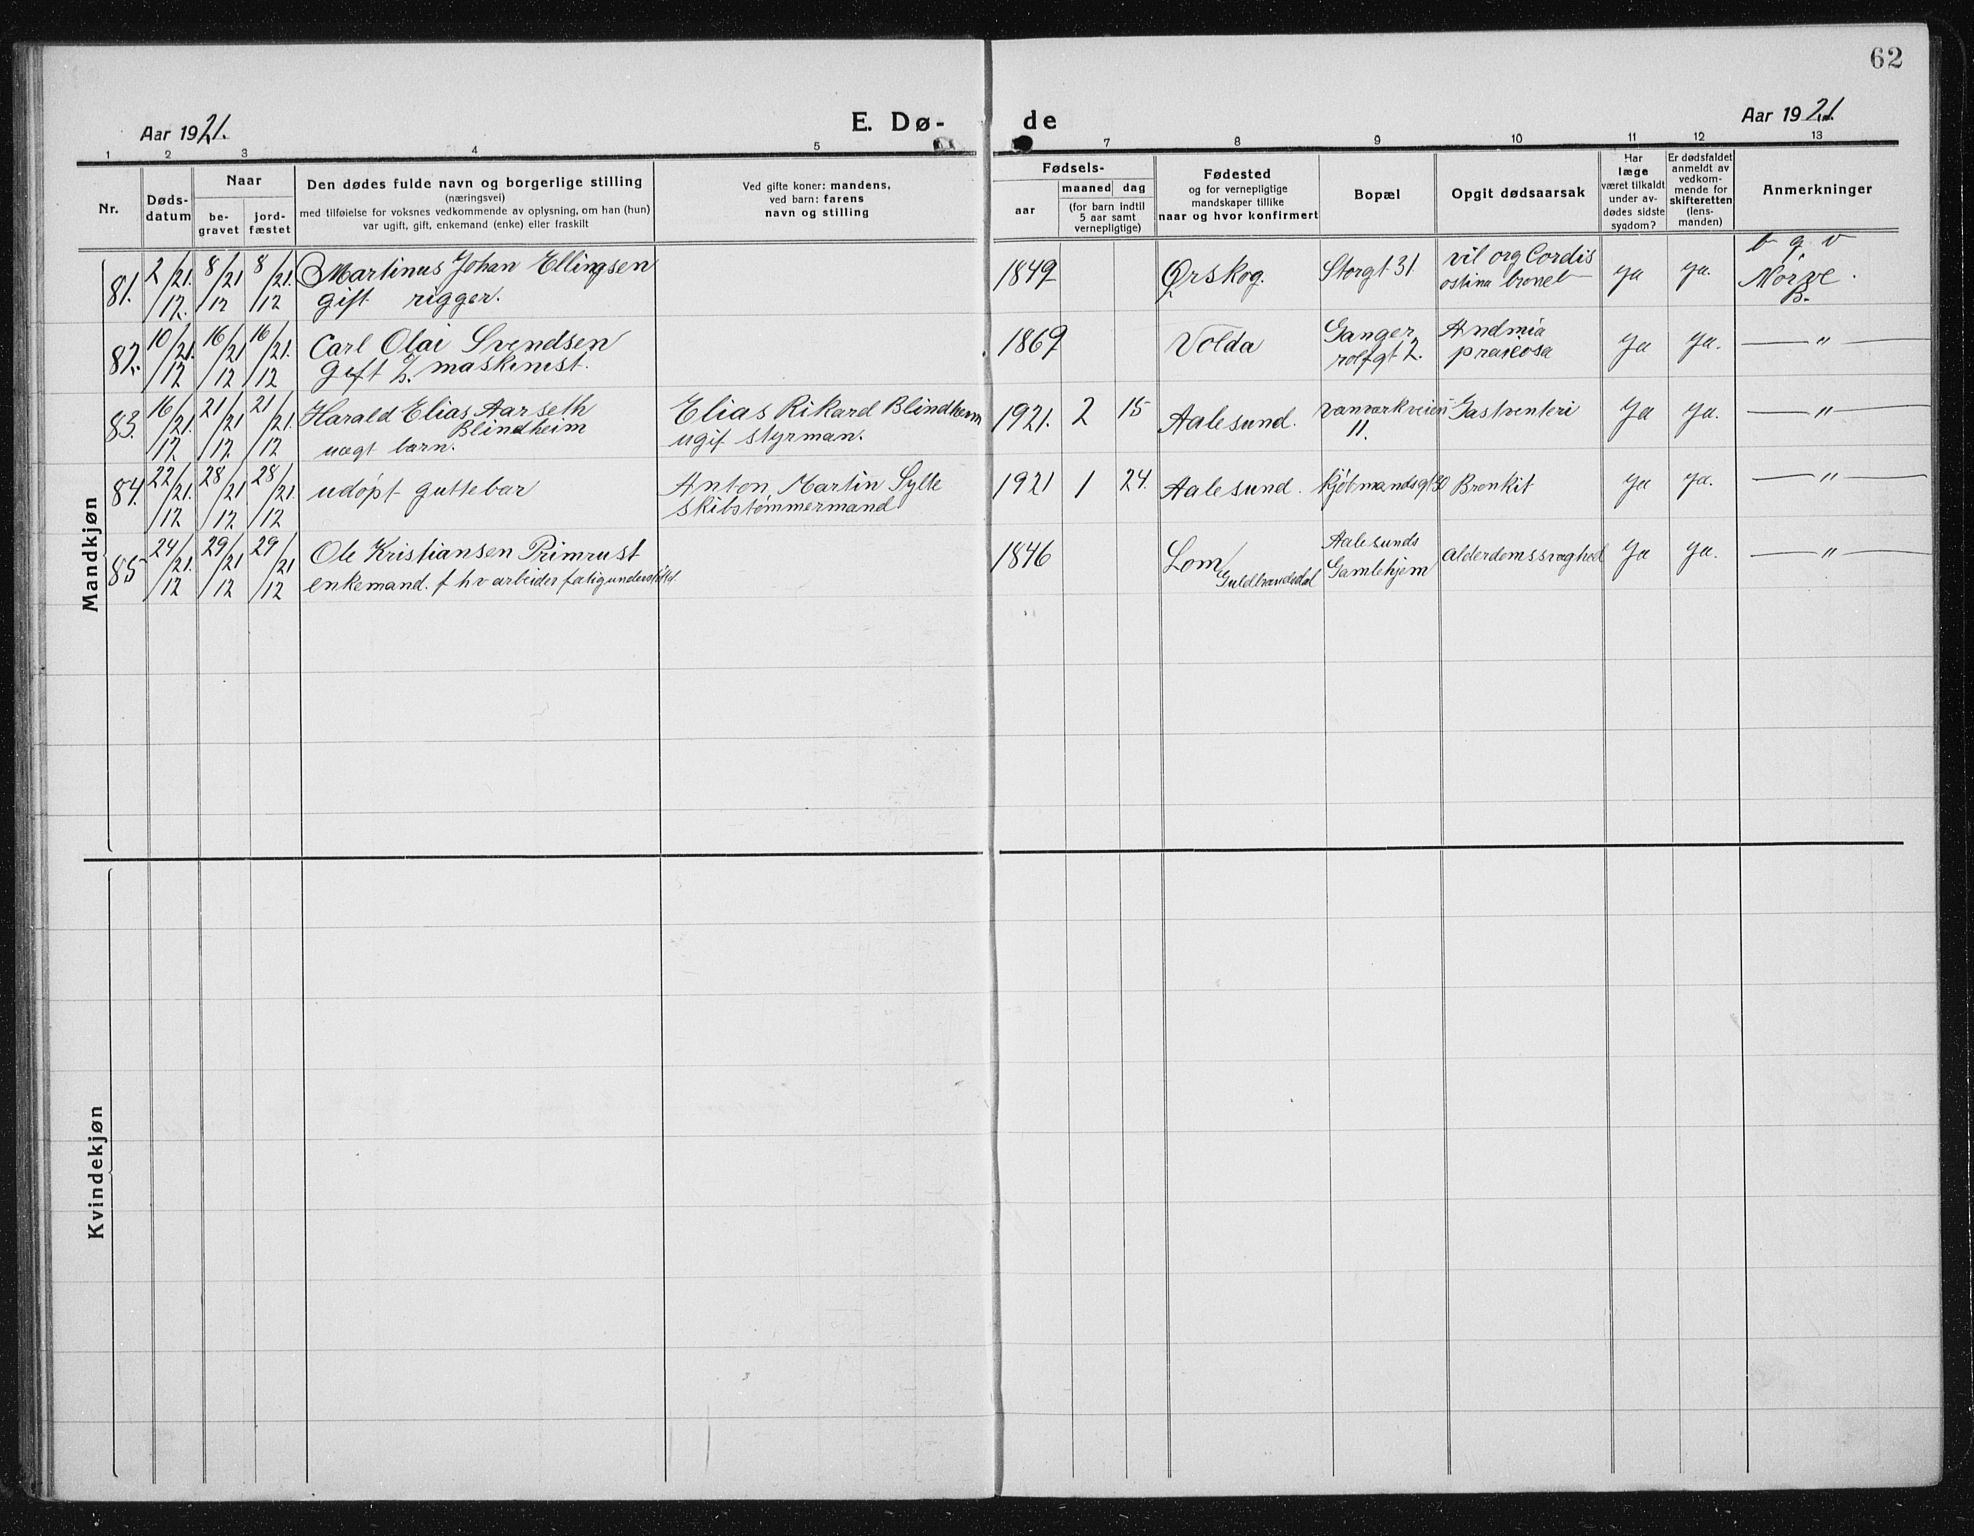 62
Aar 1921.
E. Dø-
de
Aar 1921.
1 2 3 4 5 7 8 9 10 11 12 13
Nr.
Døds-
datum
Naar
be-
gravet
jord-
fæstet
Den dødes fulde navn og borgerlige stilling
(næringsvei)
med tilføielse for voksnes vedkommende av oplysning, om han (hun)
var ugift, gift, enkemand (enke) eller fraskilt
Ved gifte koner: mandens,
ved barn: farens
navn og stilling
Fødsels-
aar
maaned dag
(for barn indtil
5 aar samt
vernepligtige)
Fødested
og for vernepligtige
mandskaper tillike
naar og hvor konfirmert
Bopæl
Opgit dødsaarsak
Har
læge
været tilkaldt
under av-
dødes sidste
sygdom?
Er dødsfaldet
anmeldt av
vedkom-
mende for
skifteretten
(lens-
manden)
Anmerkninger
Mandkjøn
81. 2/12 21. 8/12 21 8/12 21. Martinus Johan Ellingsen
gift rigger.
1849 Ørskog. Storgt 31. vit org Cordis
ja ja. b g v
Nørve.
B.
82. 10/12 21. 16/12 21 16/12 21. Carl Olai Svendsen
Gift 2. maskinist.
1869 Volda Ganger
rolfgt 2. ja ja. — " —
83. 16/12 21. 21/12 21 21/12 21. Harald Elias Aarseth
Blindheim
uægt barn.
Elias Rikard Blindheim
ugif styrman.
1921. 2 15 Aalesund.
11. Gastventeri ja ja. — " —
84. 22/12 21. 28/12 21 28/12 21. udøpt guttebar
Anton Martin Sylte
skibstømmermand
1921 1 24. Aalesund. kjøbmandsgt 30 Bronkit ja ja. — " —
85 24/12 21. 29/12 21 29/12 21 Ole Kristiansen Primrust
enkemand. f hv arbeider fatigunderstøttet.
1846 Lom
Guldbrandsdal
Aalesunds
Gamlehjem alderdomssvaghed ja ja. — " —
Kvindekjøn